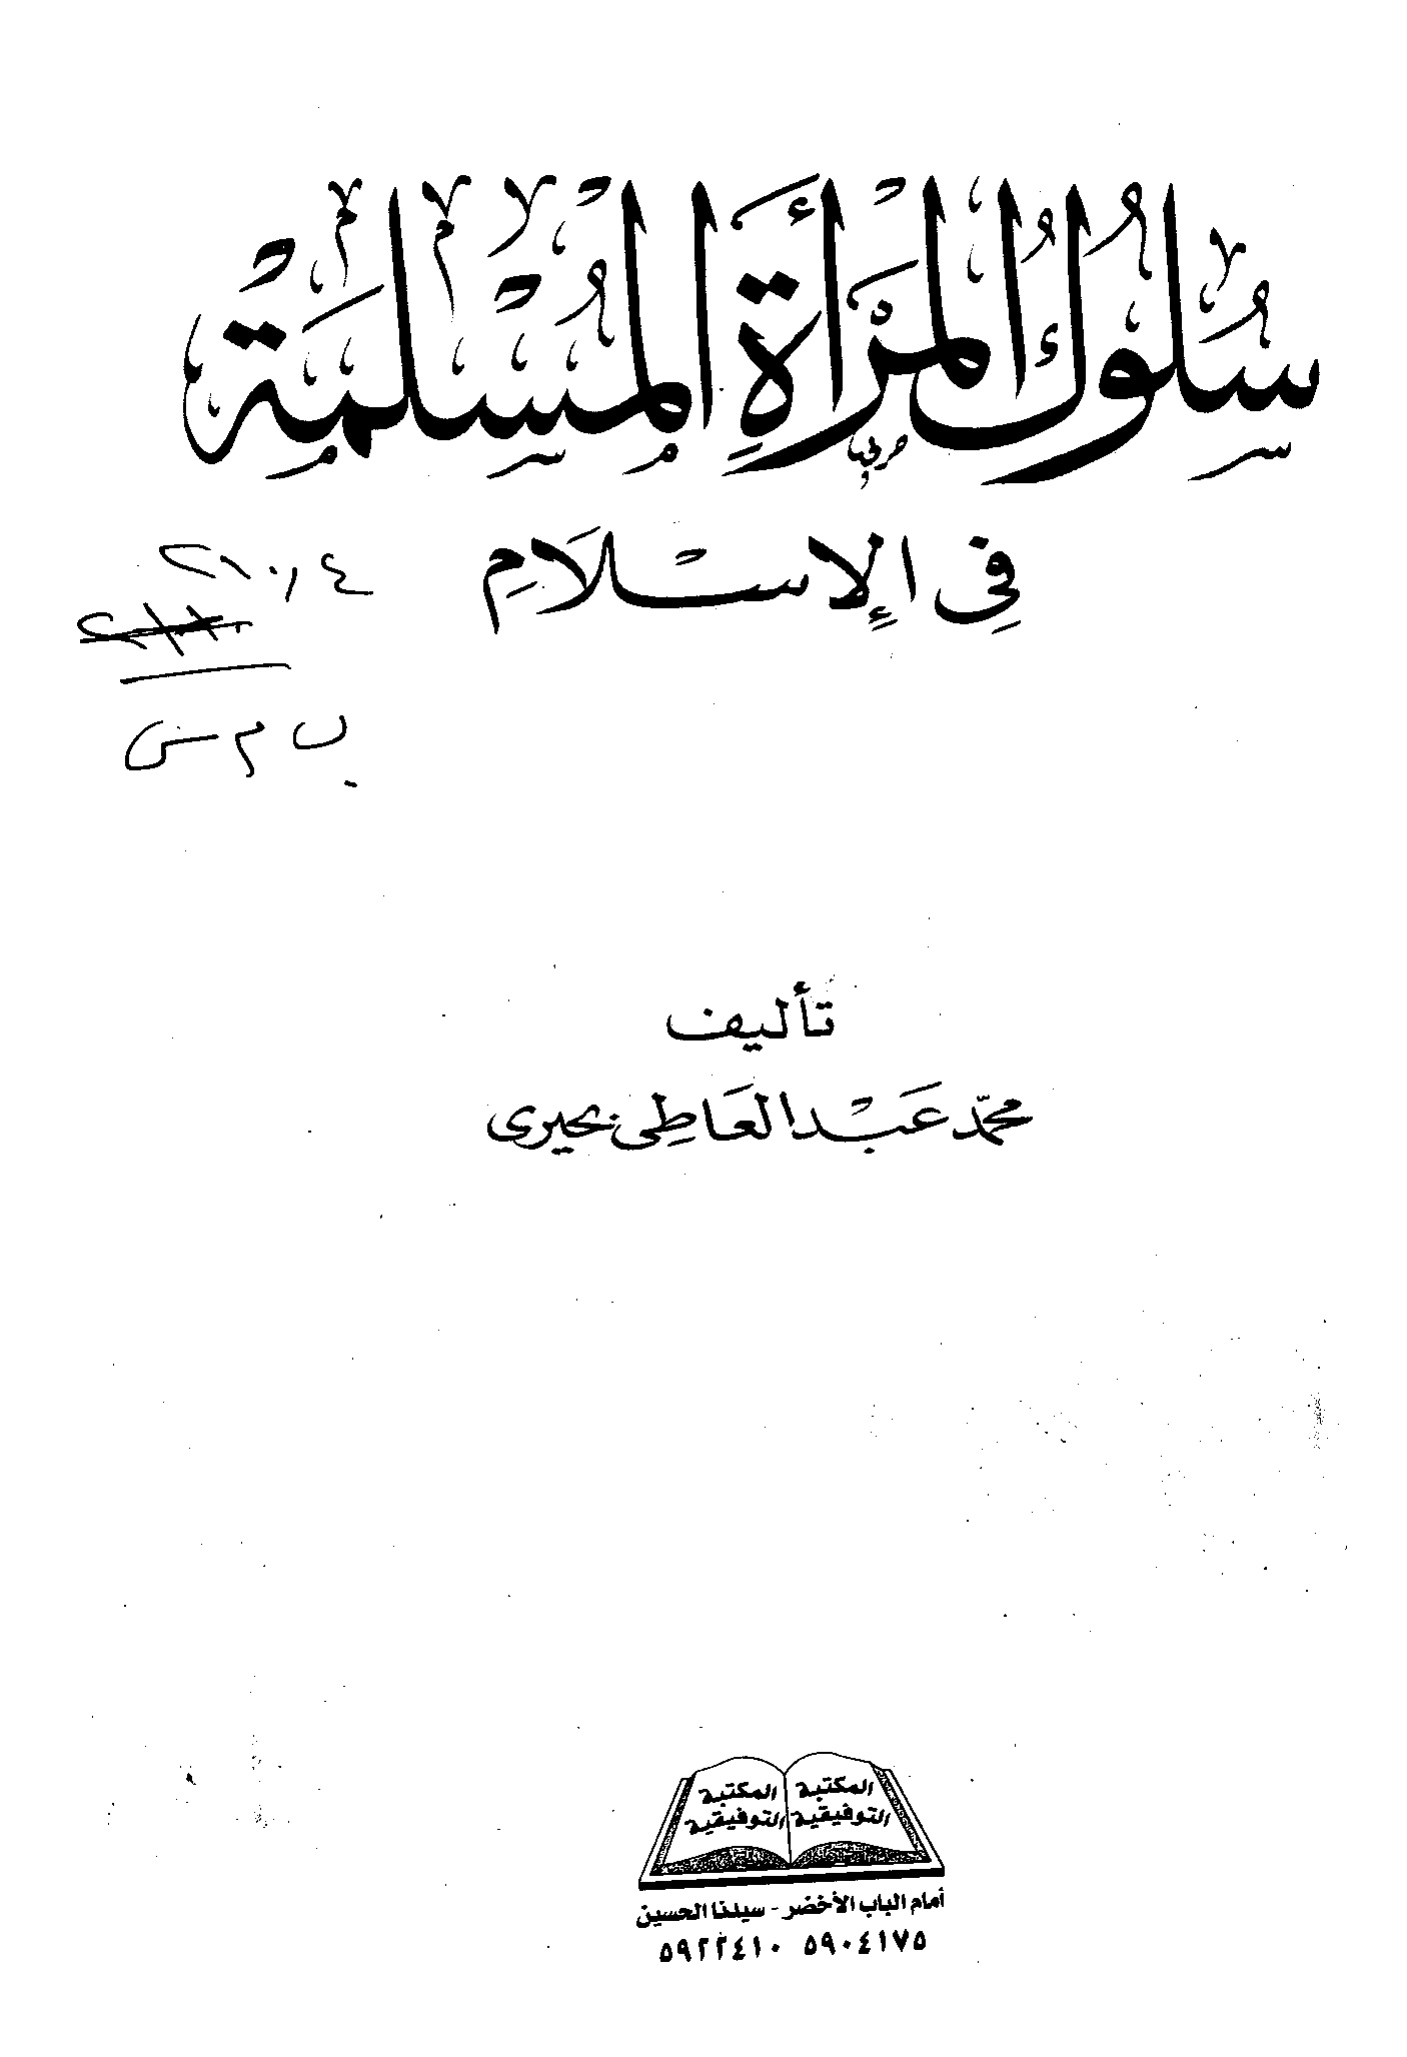 سُلُوكُ الْمَرْأَةِ الْمُسْلِمَةِ
فِى الإِسْلَامِ
٢١٠,٤
ب م س
تأليف
محمّد عَبْد العَاطِى بحيرى
المكتبة المكتبة
التوفيقية التوفيقية
أمام الباب الأخضر - سيدنا الحسين
٥٩٠٤١٧٥ ٥٩٢٢٤١٠